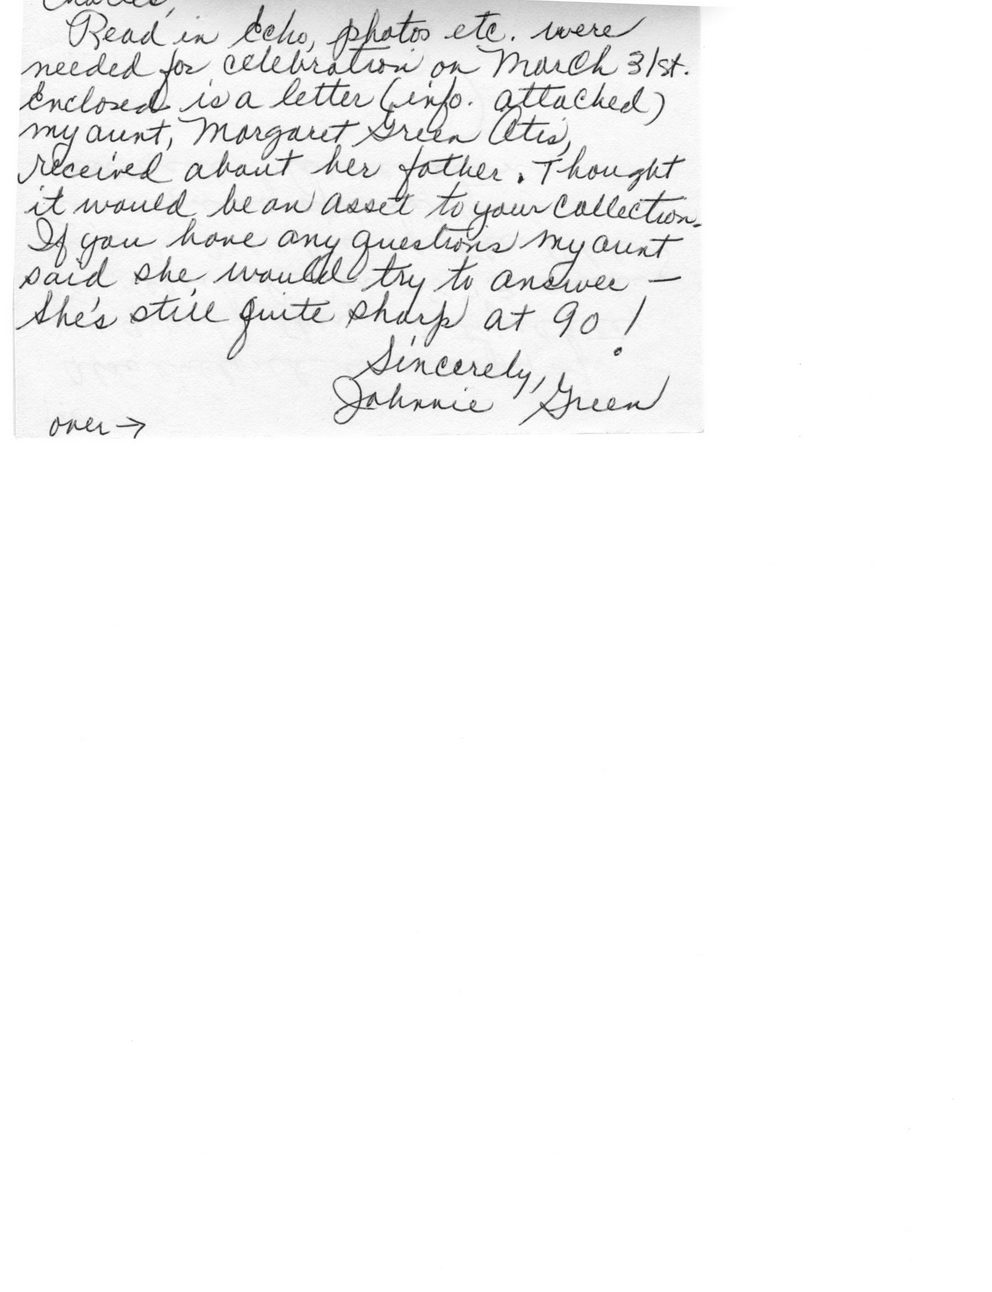 Charles,
Read in Echo, photos etc. were
needed for celebration on March 31st.
Enclosed is a letter (info. attached)
my aunt, Margaret Green Otis,
received about her father. Thought
it would be an asset to your collection.
If you have any questions my aunt
said she would try to answer —
She's still quite sharp at 90!
Sincerely,
Johnnie Green
over →